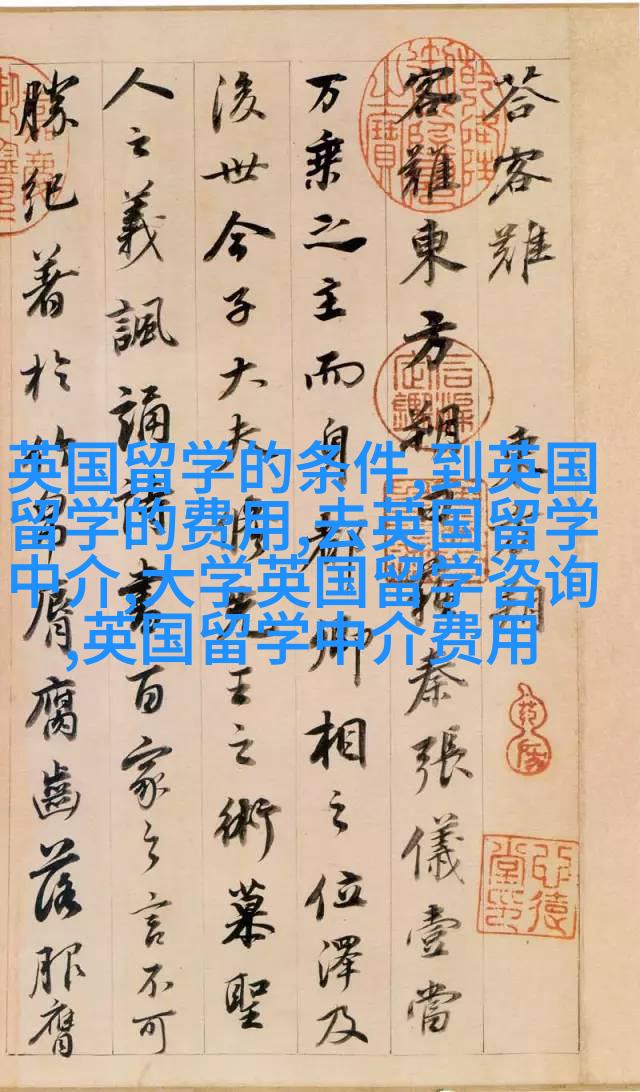 荅客難 東方朔
客難東方朔曰蘇秦張儀壹當
万乗之主而身都卿相之位澤及
後世今子大夫脩先王之術慕聖
人之義諷誦詩書百家之言不可
勝紀著於竹帛脣腐齒落服膺
英国留学的条件,到英国
留学的费用,去英国留学
中介,大学英国留学咨询
,英国留学中介费用